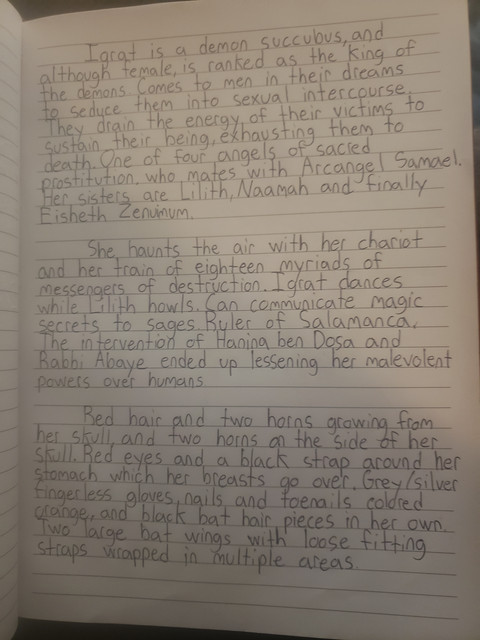 Igrat is a demon succubus, and
although female, is ranked as the king of
the demons. Comes to men in their dreams
to seduce them into sexual intercourse.
They drain the energy of their victims to
sustain their being, exhausting them to
death. One of four angels of sacred
prostitution, who mates with Arcangel Samael.
Her sisters are Lilith, Naamah and finally
Eisheth Zenunum.
She haunts the air with her chariot
and her train of eighteen myriads of
messengers of destruction. Igrat dances
while Lilith howls. Can communicate magic
secrets to sages. Ruler of Salamanca.
The intervention of Hanina ben Dosa and
Rabbi Abaye ended up lessening her malevolent
powers over humans
Red hair and two horns growing from
her skull, and two horns on the side of her
skull. Red eyes and a black strap around her
stomach which her breasts go over. Grey/silver
fingerless gloves, nails and toenails colored
orange, and black bat hair pieces in her own.
Two large bat wings with loose fitting
straps wrapped in multiple areas.